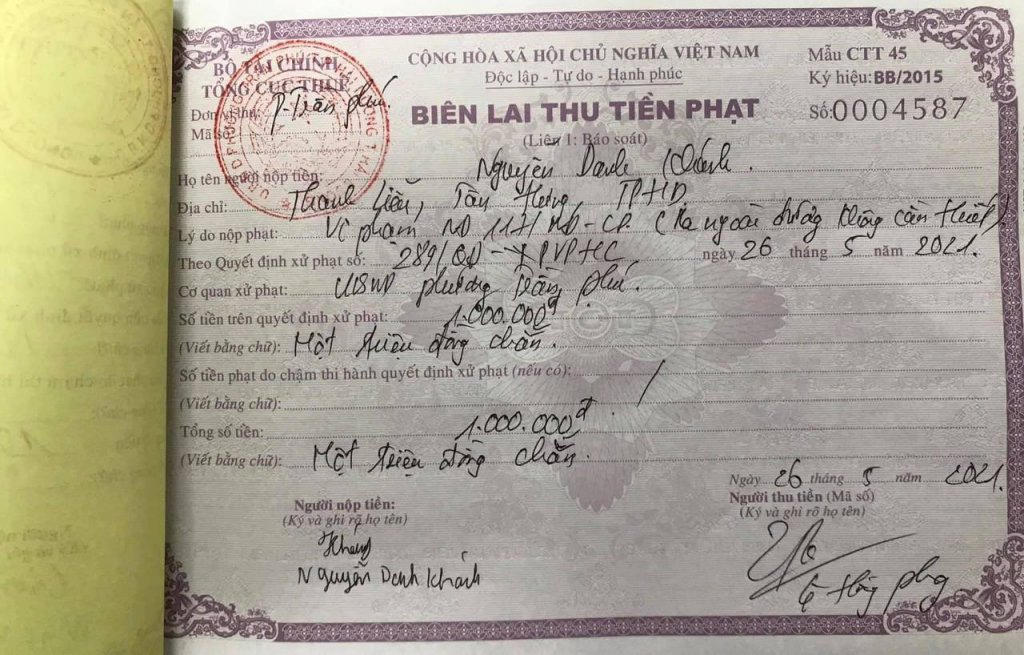 BỘ TÀI CHÍNH
TỔNG CỤC THUẾ
Đơn vị thu: P. Trần phú.
Mã số:
CỘNG HÒA XÃ HỘI CHỦ NGHĨA VIỆT NAM
Độc lập - Tự do - Hạnh phúc
BIÊN LAI THU TIỀN PHẠT
(Liên 1: Báo soát)
Mẫu CTT 45
Ký hiệu: BB/2015
Số: 0004587
Họ tên người nộp tiền: Nguyễn Danh Khánh.
Địa chỉ: Thanh Liễu, Tân Hưng, TPHD
Lý do nộp phạt: Vi phạm NĐ 117/NĐ-CP. (Ra ngoài đường không cần thiết).
Theo Quyết định xử phạt số: 289/QĐ-XPVPHC ngày 26 tháng 5 năm 2021.
Cơ quan xử phạt: UBND phường Trần phú.
Số tiền trên quyết định xử phạt: 1.000.000đ
(Viết bằng chữ): Một triệu đồng chẵn.
Số tiền phạt do chậm thi hành quyết định xử phạt (nếu có): /
(Viết bằng chữ):
Tổng số tiền: 1.000.000đ.
(Viết bằng chữ): Một triệu đồng chẵn.
Ngày 26 tháng 5 năm 2021.
Người nộp tiền:
(Ký và ghi rõ họ tên)
Nguyễn Danh Khánh
Người thu tiền (Mã số)
(Ký và ghi rõ họ tên)